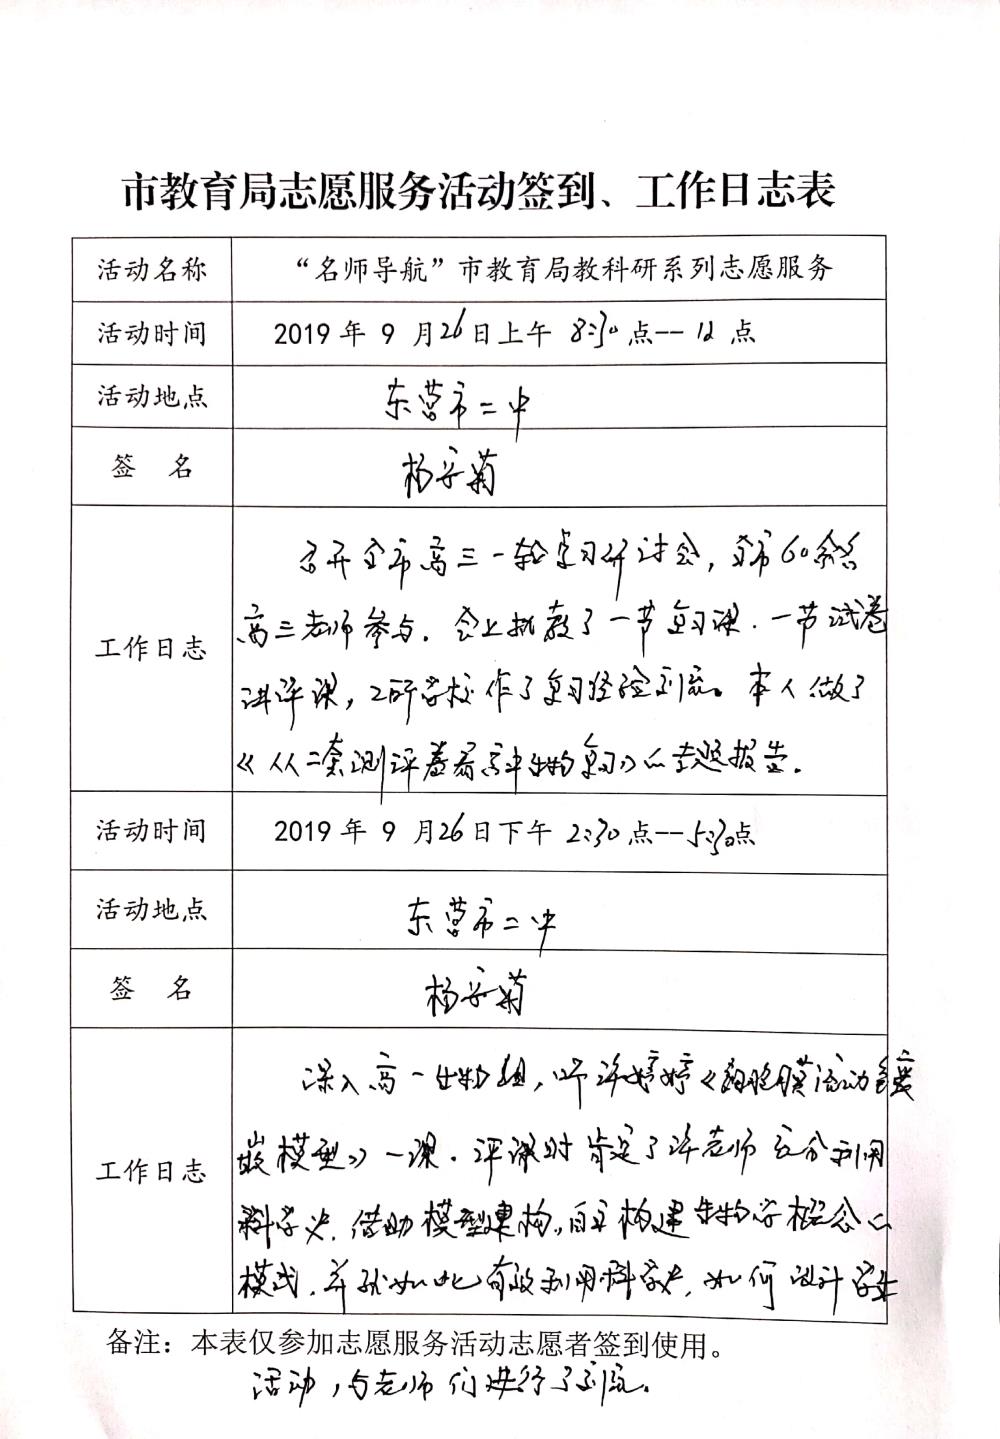 市教育局志愿服务活动签到、工作日志表
活动名称 “名师导航”市教育局教科研系列志愿服务
活动时间 2019年9月26日上午8:30点--12点
活动地点 东营市二中
签 名 杨安菊
工作日志 召开全市高三一轮复习研讨会，全市60余名
高三老师参与。会上执教了一节复习课.一节试卷
讲评课，2所学校作了复习经验交流。本人做了
《从二套测评卷看高中生物复习》的专题报告.
活动时间 2019年9月26日下午2:30点--5:30点
活动地点 东营市二中
签 名 杨安菊
工作日志 深入高一生物组，听许婷婷《细胞膜流动镶
嵌模型》一课.评课时肯定了许老师充分利用
科学史.借助模型建构,自主构建生物学概念的
模式.并就如此有效利用科学史,如何设计学生
备注：本表仅参加志愿服务活动志愿者签到使用。
活动,与老师们进行了交流。